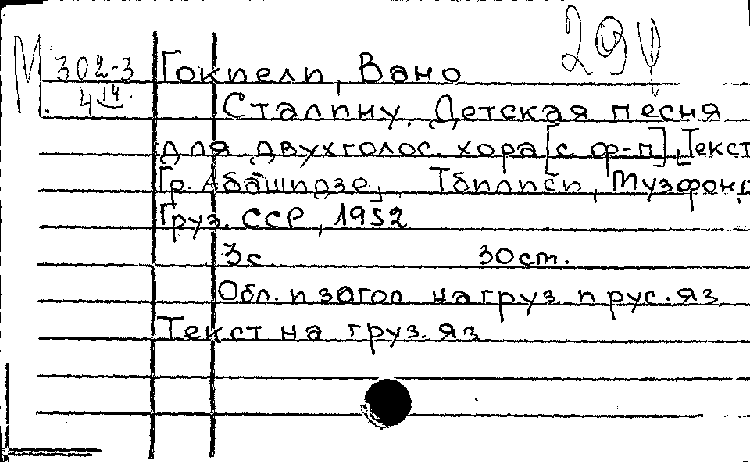 29У
М 302-3 Гокиели, Вано
4 14. Сталину. Детская песня
для двухголос. хора [с ф-п], Текст
Гр. Абашидзе, Тбилиси, Музфонд
Груз. ССР, 1952
3 с. 30 ст.
Обл. и загол на груз и рус. яз
Текст на груз. яз